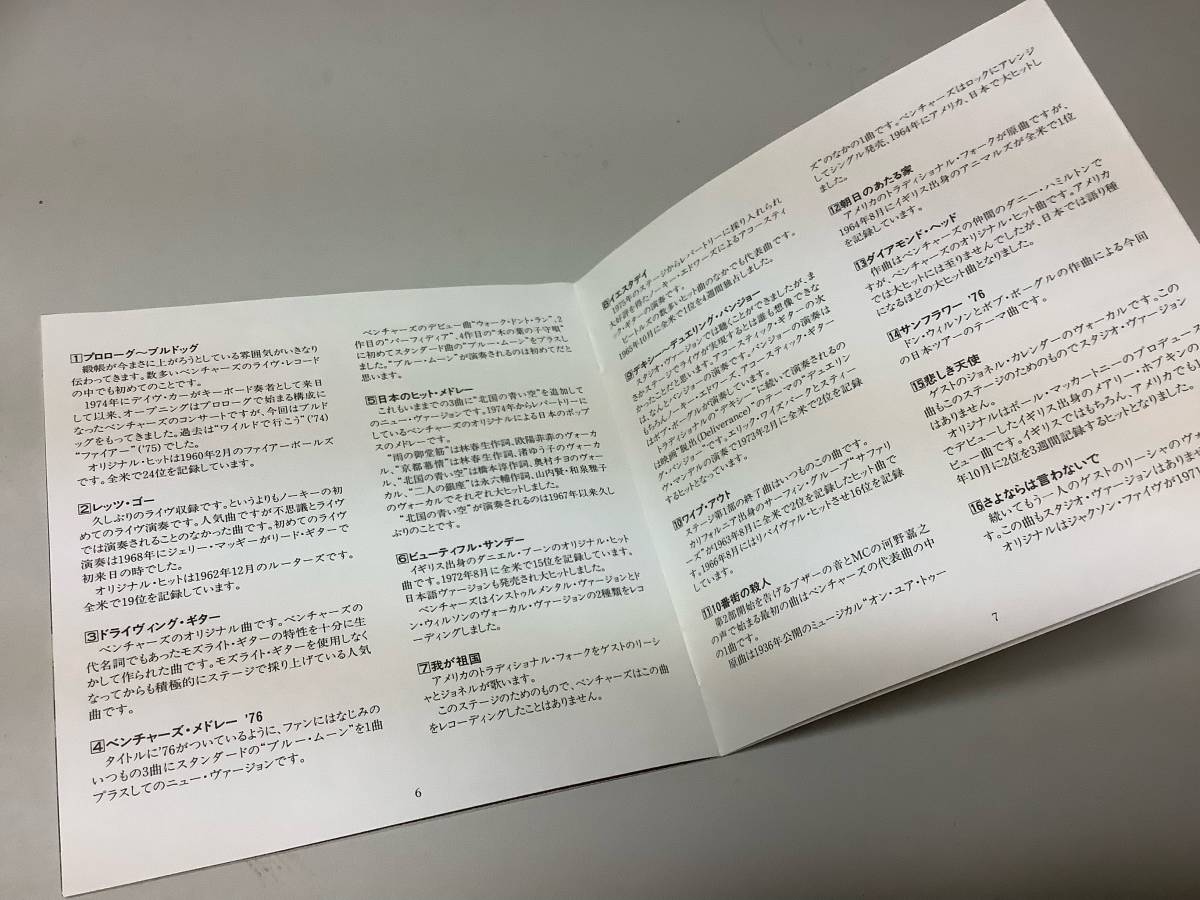 1プロローグ～ブルドッグ
緞帳が今まさに上がろうとしている雰囲気がいきなり
伝わってきます。数多いベンチャーズのライヴ・レコード
の中でも初めてのことです。
1974年にデイヴ・カーがキーボード奏者として来日
して以来、オープニングはプロローグで始まる構成に
なったベンチャーズのコンサートですが、今回はブルド
ッグをもってきました。過去は“ワイルドで行こう”('74)
“ファイアー”('75)でした。
オリジナル・ヒットは1960年2月のファイアーボールズ
です。全米で24位を記録しています。
2レッツ・ゴー
久しぶりのライヴ収録です。というよりもノーキーの初
めてのライヴ演奏です。人気曲ですが不思議とライヴ
では演奏されることのなかった曲です。初めてのライヴ
演奏は1968年にジェリー・マッギーがリード・ギターで
初来日の時でした。
オリジナル・ヒットは1962年12月のルーターズです。
全米で19位を記録しています。
3ドライヴィング・ギター
ベンチャーズのオリジナル曲です。ベンチャーズの
代名詞でもあったモズライト・ギターの特性を十分に生
かして作られた曲です。モズライト・ギターを使用しなく
なってからも積極的にステージで採り上げている人気
曲です。
4ベンチャーズ・メドレー '76
タイトルに'76がついているように、ファンにはなじみの
いつもの3曲にスタンダードの“ブルー・ムーン”を1曲
プラスしてのニュー・ヴァージョンです。
ベンチャーズのデビュー曲“ウォーク・ドント・ラン”、2
作目の“パーフィディア”、4作目の“木の葉の子守唄”
に初めてスタンダード曲の“ブルー・ムーン”をプラスし
ました。“ブルー・ムーン”が演奏されるのは初めてだと
思います。
5日本のヒット・メドレー
これもいままでの3曲に“北国の青い空”を追加して
のニュー・ヴァージョンです。1974年からレパートリーに
しているベンチャーズのオリジナルによる日本のポップ
スのメドレーです。
“雨の御堂筋”は林春生作詞、欧陽菲菲のヴォーカ
ル、“京都慕情”は林春生作詞、渚ゆう子のヴォーカ
ル、“北国の青い空”は橋本淳作詞、奥村チヨのヴォー
カル、“二人の銀座”は永六輔作詞、山内賢・和泉雅子
のヴォーカルでそれぞれ大ヒットしました。
“北国の青い空”が演奏されるのは1967年以来久し
ぶりのことです。
6ビューティフル・サンデー
イギリス出身のダニエル・ブーンのオリジナル・ヒット
曲です。1972年8月に全米で15位を記録しています。
日本語ヴァージョンも発売され大ヒットしました。
ベンチャーズはインストゥルメンタル・ヴァージョンとド
ン・ウィルソンのヴォーカル・ヴァージョンの2種類をレコ
ーディングしました。
7我が祖国
アメリカのトラディショナル・フォークをゲストのリーシ
ャとジョネルが歌います。
このステージのためのもので、ベンチャーズはこの曲
をレコーディングしたことはありません。
6
8イエスタデイ
1975年のステージからレパートリーに採り入れられ
大好評を得たノーキー・エドワーズによるアコースティ
ック・ギターの演奏です。
ビートルズの数多いヒット曲のなかでも代表曲です。
1965年10月に全米で1位を4週間独占しました。
9デキシー～デューエリング・バンジョー
スタジオ・ヴァージョンでは聴くことができましたが、ま
さかステージでライヴが実現するとは誰も想像できな
かったことだと思います。アコースティック・ギターの次
は、なんとバンジョーの演奏です。バンジョーの演奏は
もちろん、ノーキー・エドワーズ、アコースティック・ギター
はボブ・ボーグルが演奏しています。
トラディショナルの“デキシー”に続いて演奏されるの
は映画“脱出(Deliverance)”のテーマの“デュエリン
グ・バンジョー”です。エリック・ワイズバーグとスティー
ヴ・マンデルの演奏で1973年2月に全米で2位を記録
するヒットとなっています。
10ワイプ・アウト
ステージ第1部の終了曲はいつものこの曲です。
カリフォルニア出身のサーフィン・グループ“サファリ
ーズ”が1963年8月に全米で2位を記録したヒット曲で
す。1966年8月にはリバイヴァル・ヒットさせ16位を記録
しています。
1110番街の殺人
第2部開始を告げるブザーの音とMCの河野嘉之
の声で始まる最初の曲はベンチャーズの代表曲の中
の1曲です。
原曲は1936年公開のミュージカル“オン・ユア・トゥー
ズ”のなかの1曲です。ベンチャーズはロックにアレンジ
してシングル発売、1964年にアメリカ、日本で大ヒットし
ました。
12朝日のあたる家
アメリカのトラディショナル・フォークが原曲ですが、
1964年8月にイギリス出身のアニマルズが全米で1位
を記録しています。
13ダイアモンド・ヘッド
作曲はベンチャーズの仲間のダニー・ハミルトンで
すが、ベンチャーズのオリジナル・ヒット曲です。アメリカ
では大ヒットには至りませんでしたが、日本では語り種
になるほどの大ヒット曲となりました。
14サンフラワー '76
ドン・ウィルソンとボブ・ボーグルの作曲による今回
の日本ツアーのテーマ曲です。
15悲しき天使
ゲストのジョネル・カレンダーのヴォーカルです。この
曲もこのステージのためのものでスタジオ・ヴァージョン
はありません。
オリジナルはポール・マッカートニーのプロデュー
でデビューしたイギリス出身のメアリー・ホプキンの
ビュー曲です。イギリスではもちろん、アメリカでも
年10月に2位を3週間記録するヒットとなりました。
16さよならは言わないで
続いてもう一人のゲストのリーシャのヴォ
す。この曲もスタジオ・ヴァージョンはありませ
オリジナルはジャクソン・ファイヴが197
7